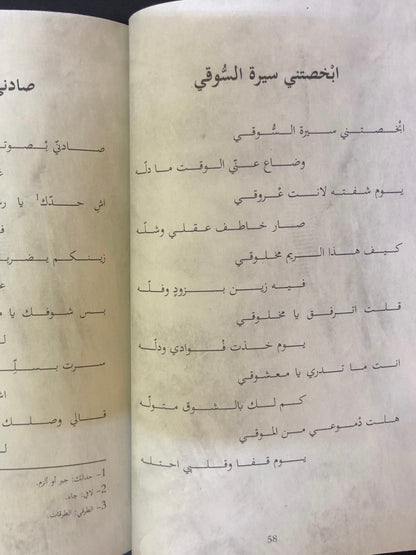 ابْخصتني سيرة السُّوقي
ابْخصتني سيرة السُّوقي
وضاع عنّي الوقت ما دلّه
يوم شفته لانت عُروقي
صار خاطف عقلي وشلّه
كيف هذا الريم مخلوقي
فيه زين بزودٍ وفلّه
قلت اترفق يا مخلوقي
يوم خذت فُوادي ودلّه
انت ما تدري يا معشوقي
كم لك بالشوق متولّه
هلت دُموعي من الموقي
يوم قفا وقلبي احتله
58
صادني
صادنيّ بصوته
اش حدّك1 يا
زينكم يضرب
بس شوفك يا
سرت
قالي وصلك
1- حدالك: جبر أو ألزم.
2- لافي: جاء.
3- الطرقي: الطرقات.